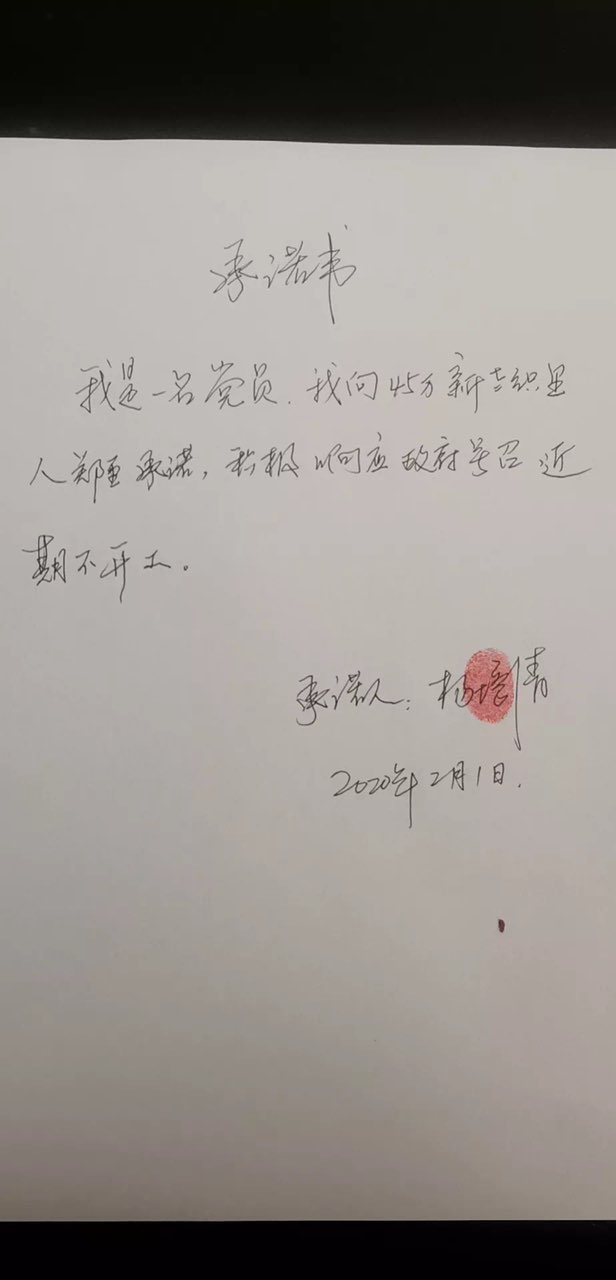 承诺书
我是一名党员.我向45万新老织里
人郑重承诺,积极响应政府号召 近
期不开工。
承诺人:杨增清
2020年2月1日.